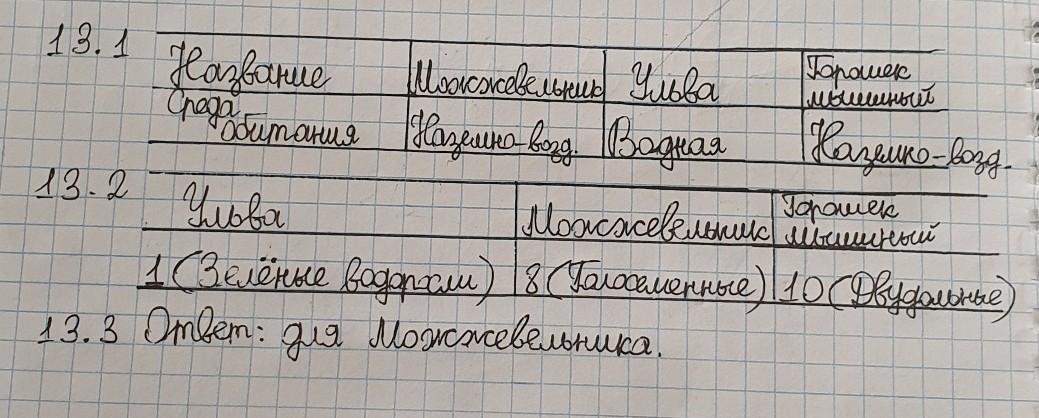 13.1
Название Можжевельник Ульва Горошек мышиный
Среда обитания Наземно-возд. Водная Наземно-возд.
13.2
Ульва Можжевельник Горошек мышиный
1 (Зелёные водоросли) 8 (Голосеменные) 10 (Двудольные)
13.3 Ответ: для Можжевельника.